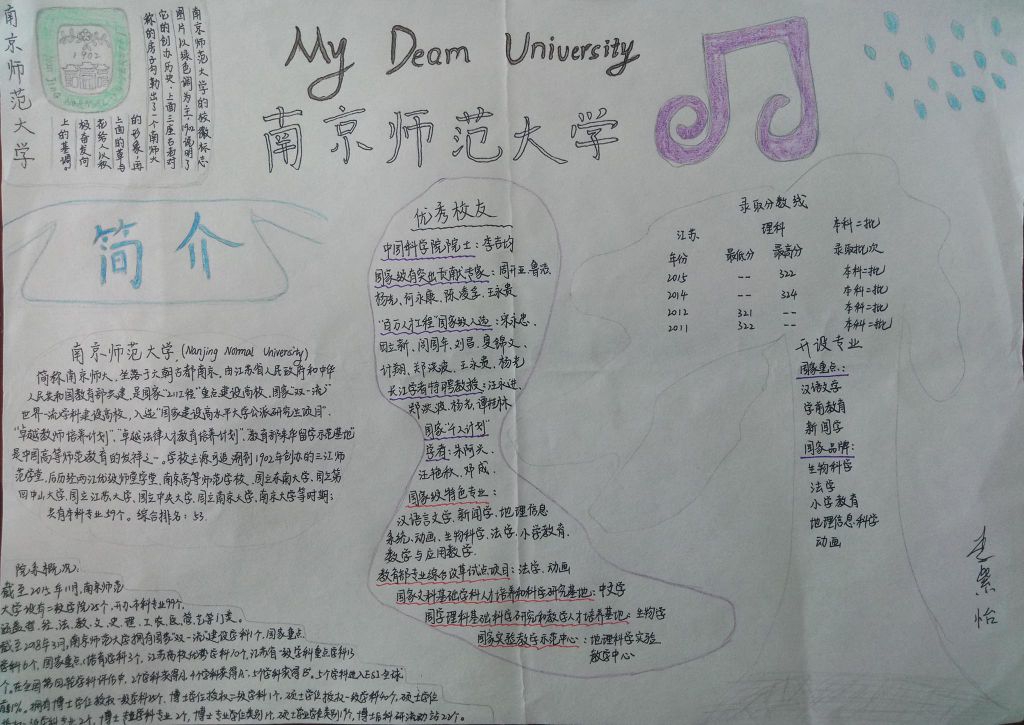 My Deam University
南京师范大学
南京师范大学
1902
南京师范大学的校徽标志
图片以绿色调为主,1902说明了
它的创办历史,上面三座古老对
称的房子勾勒出了一个南师大
的形象,再
上面的草与
花给人以极
积奋发向
上的基调。
简介
南京师范大学 (Nanjing Normal University)
简称南京师大,坐落于六朝古都南京,由江苏省人民政府和中华
人民共和国教育部共建,是国家"211工程"重点建设高校,国家"双一流"
世界一流学科建设高校,入选"国家建设高水平大学公派研究生项目"
"卓越教师培养计划""卓越法律人才教育培养计划",教育部来华留学示范基地"
是中国高等师范教育的发祥之一。学校主源可追溯到1902年创办的三江师
范学堂,后历经两江优级师堂学堂,南京高等师范学校,国立东南大学,国立第
四中山大学,国立江苏大学,国立中央大学,国立南京大学,南京大学等时期;
共有本科专业59个。综合排名:53.
院系概况:
截至2015年11月,南京师范
大学设有二级学院25个,开办本科专业99个.
涵盖哲、经、法、教、文、史、理、工、农、医、管、艺等12类。
截至2018年3月,南京师范大学拥有国家"双一流"建设学科1个,国家重点
学科6个,国家重点(培育)学科3个,江苏高校优势学科10个,江苏省一级学科重点学科13
个。在全国第四轮学科评估中,2个学科获得A,4个学科获得A-,5个学科获得B+。5个学科进入ESI全球
优秀校友
中国科学院院士:李吉均
国家级有突出贡献专家:周开亚、鲁浩、
杨光、何永康、陈凌孚、王永贵
"百万人才工程"国家级人选:宋永忠、
田立新、闾国年、刘昌、夏锦文、
计翔、郑洪波、王永贵、杨光
长江学者特聘教授:汪永进、
郑洪波、杨光、谭桂林
国家"千人计划"
学者:朱阿兴、
汪艳秋、邓成
国家级特色专业:
汉语言文学、新闻学、地理信息
系统、动画、生物科学、法学、小学教育、
数学与应用数学.
教育部专业综合改革试点项目:法学、动画
国家文科基础学科人才培养和科学研究基地:中文学
国学理科基础科学研究和教学人才培养基地:生物学
国家实验教学示范中心:地理科学实验
教学中心
录取分数线
江苏 理科 本科二批
年份 最低分 最高分 录取批次
2015 -- 322 本科一批
2014 -- 324 本科一批
2012 321 -- 本科一批
2011 322 -- 本科一批
开设专业
国家重点:
汉语文学
学前教育
新闻学
国家品牌:
生物科学
法学
小学教育
地理信息科学
动画